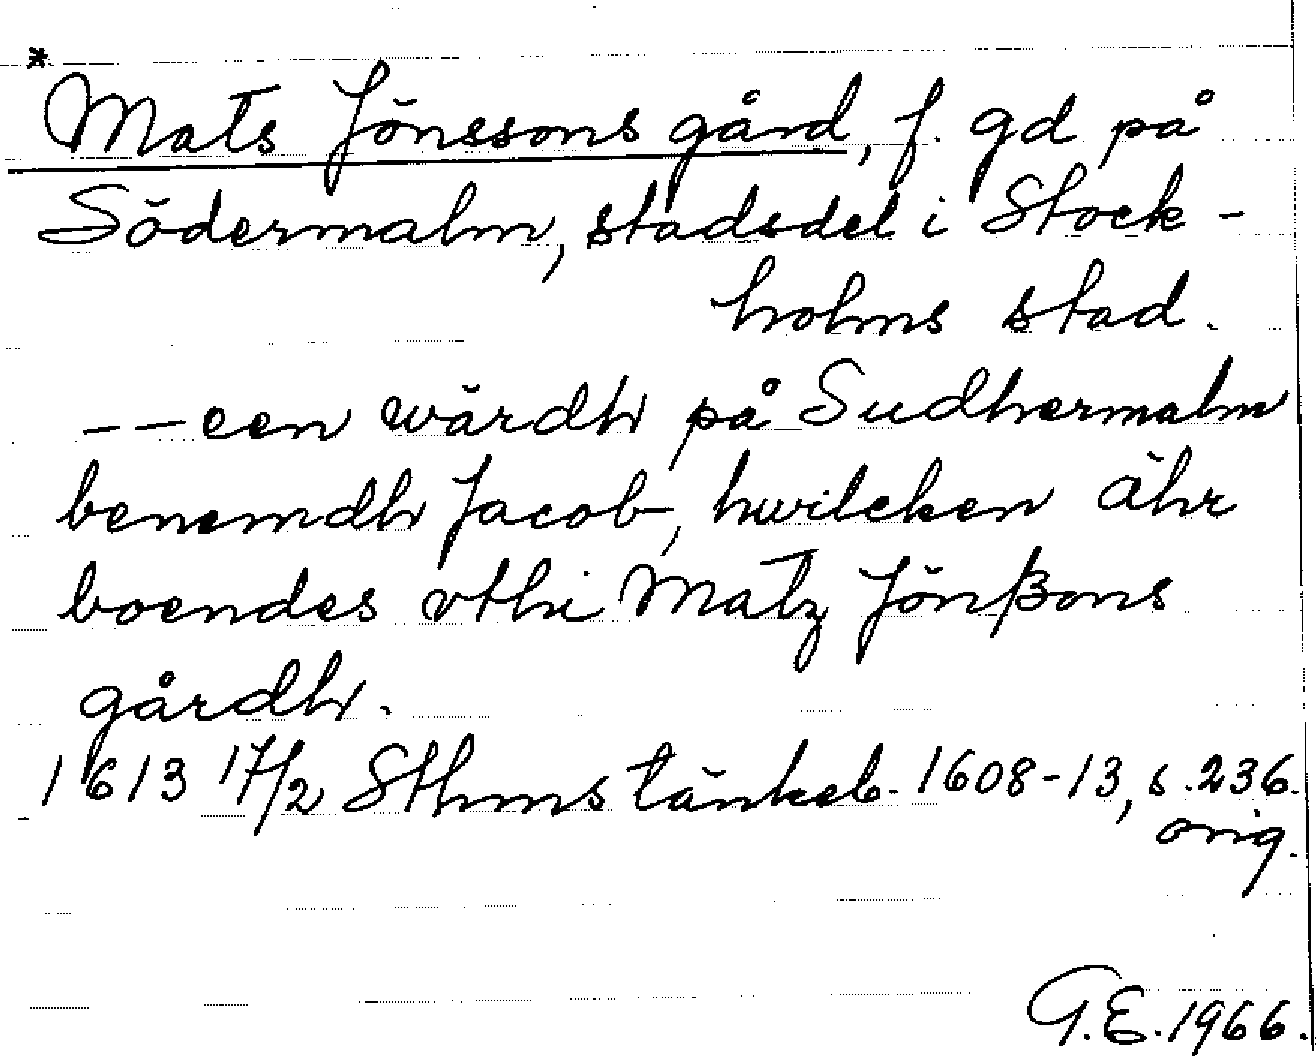 * Mats Jönssons gård, f. gd på
Södermalm, stadsdel i Stock-
holms stad.
-- een wärdh på Sudhermalm
benemdh Jacob, hwilcken ähr
boendes vthi Matz Jönßons
gårdh.
1613 17/2 Sthms tänkeb. 1608-13, s. 236.
orig.
G.E. 1966.